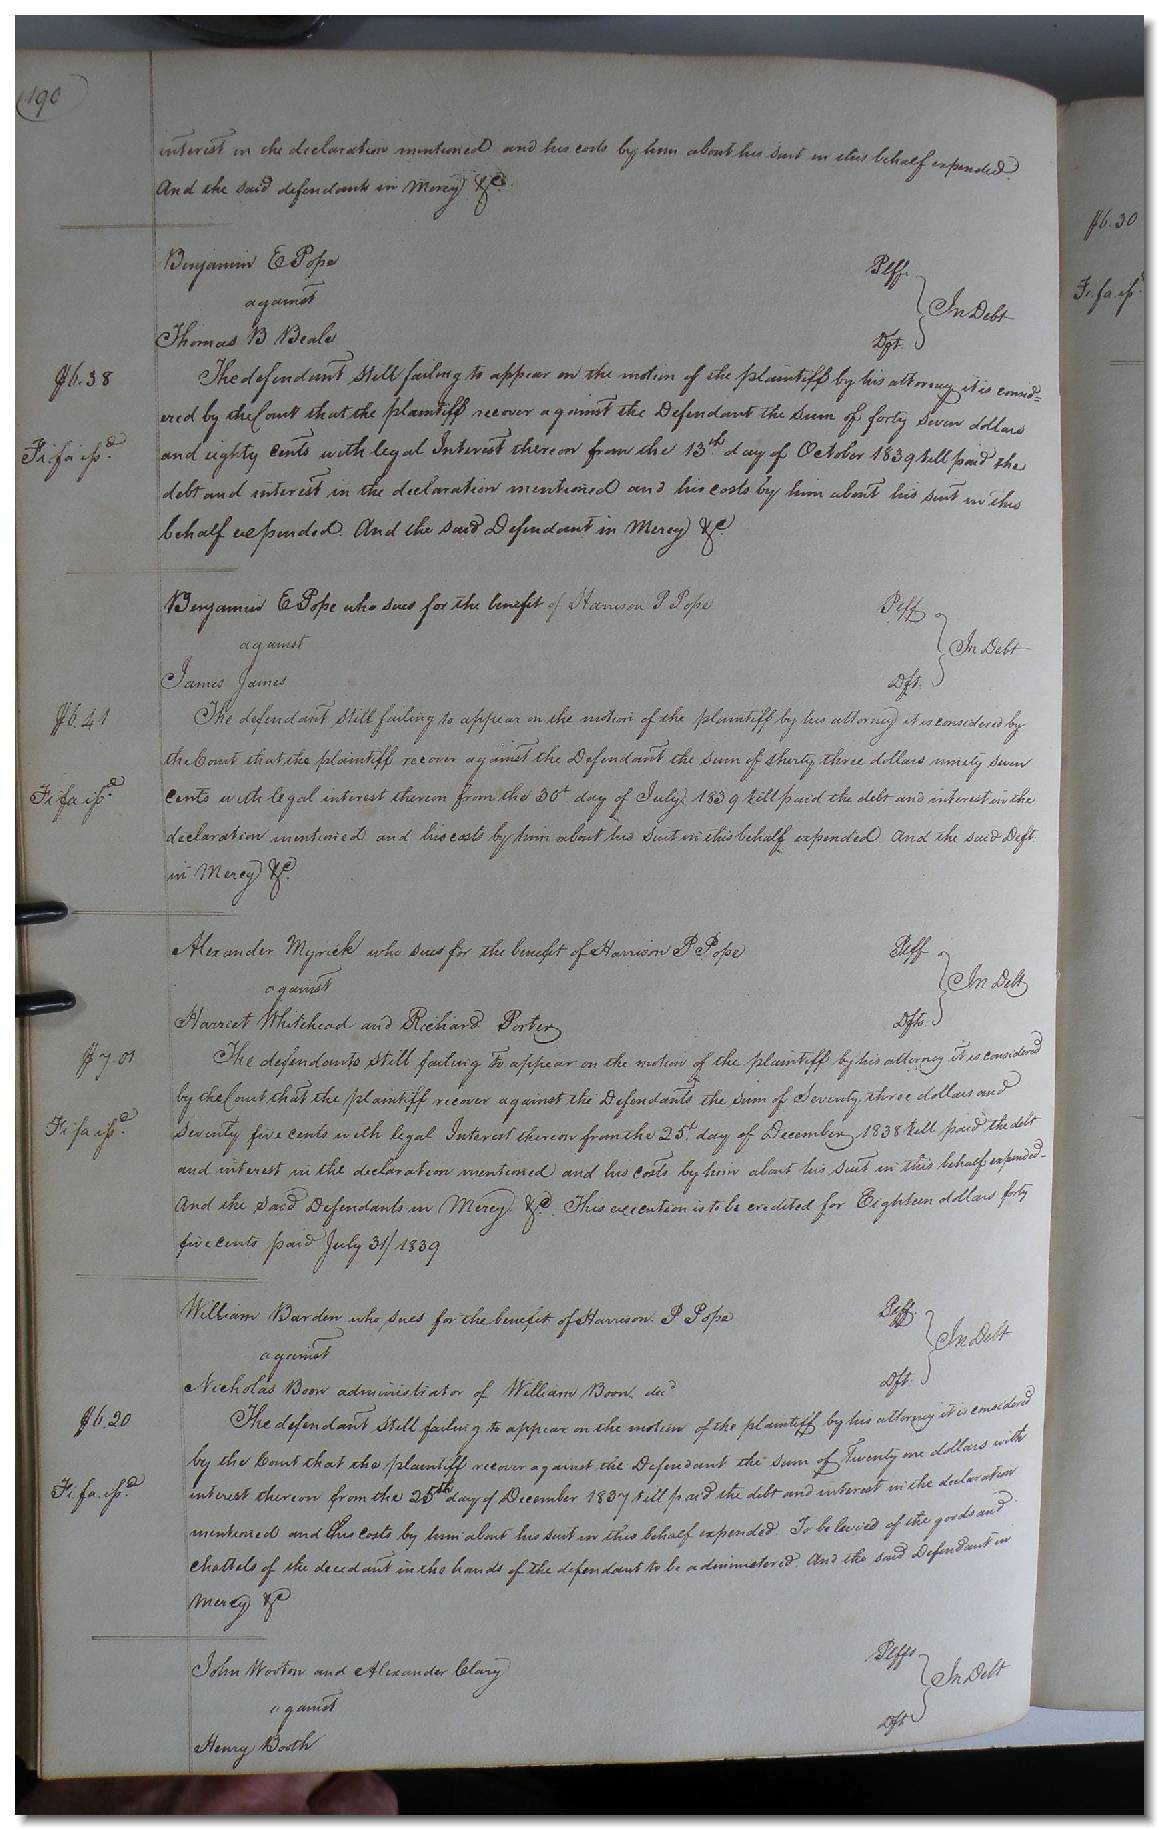 190
interest in the declaration mentioned and his costs by him about his suit in this behalf expended.
And the said defendants in Mercy &c.
Benjamin E Pope Plff.
against In Debt
Thomas B Beale Dft.
$6.38 The defendant still failing to appear on the motion of the plaintiff by his attorney it is consid=
ered by the Court that the plaintiff recover against the Defendant the sum of forty seven dollars
Fi. fa issd. and eighty cents with legal Interest thereon from the 13th day of October 1839 till paid the
debt and interest in the declaration mentioned and his costs by him about his suit in this
behalf expended. And the said Defendant in Mercy &c.
Benjamin E Pope who sues for the benefit of Harrison P Pope Plff
against In Debt
James James Dft.
$6.41 The defendant still failing to appear on the motion of the plaintiff by his attorney it is considered by
the Court that the plaintiff recover against the Defendant the sum of therty three dollars ninety seven
Fi fa issd cents with legal interest thereon from the 30th day of July 1839 till paid the debt and interest in the
declaration mentioned and his costs by him about his suit in this behalf expended. And the said Deft.
in Mercy &c.
Alexander Myrick who sues for the benefit of Harrison P Pope Plff
against In Debt
Harriet Whitehead and Richard Porter Dfts.
$7.01 The defendants still failing to appear on the motion of the plaintiff by his attorney it is considered
by the Court that the plaintiff recover against the Defendants the sum of Seventy three dollars and
Fi fa issd. seventy five cents with legal Interest thereon from the 25th day of December 1838 till paid the debt
and interest in the declaration mentioned and his costs by him about his suit in this behalf expended-
And the said Defendants in Mercy &c. This execution is to be credited for Eighteen dollars forty
five cents paid July 31/1839
William Barden who sues for the benefit of Harrison P Pope Plff.
against In Debt
Nicholas Boon administrator of William Boon decd Dft.
$6.20 The defendant still failing to appear on the motion of the plaintiff by his attorney it is considered
by the Court that the plaintiff recover against the Defendant the sum of Twenty one dollars with
Fi. fa. issd. interest thereon from the 25th day of December 1837 till paid the debt and interest in the declaration
mentioned and his costs by him about his suit in this behalf expended. To be levied of the goods and
chattels of the decedant in the hands of the defendant to be administered. And the said Defendant in
Mercy &c
John Wooton and Alexander Clary Plffs
against In Debt
Henry Booth Dft
$6.30
Fi. fa iss.